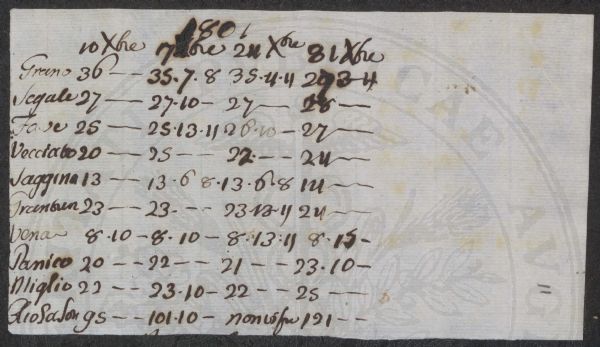 1801
10 Xbre 7 Xbre 24 Xbre 31 Xbre
Grano 36 — — 35.7.8 35.4.4
Segale 27 — — 27.10 — 27 — —
Fave 25 — — 25.13.4 26.10 — 27 — —
Vecciato 20 — — 25 — — 22 — — 24 — —
Saggina 13 — — 13.6 8 . 13.6.8 14 — —
Granturn 23 — — 23 — — 23.13.4 24 — —
Vena 8.10 — 8.10 — 8.13.4 8.15 —
Panico 20 — — 22 — — 21 — — 23.10 —
Miglio 22 — — 23.10 — 22 — — 25 — —
95 — — 101.10 — 121 — —